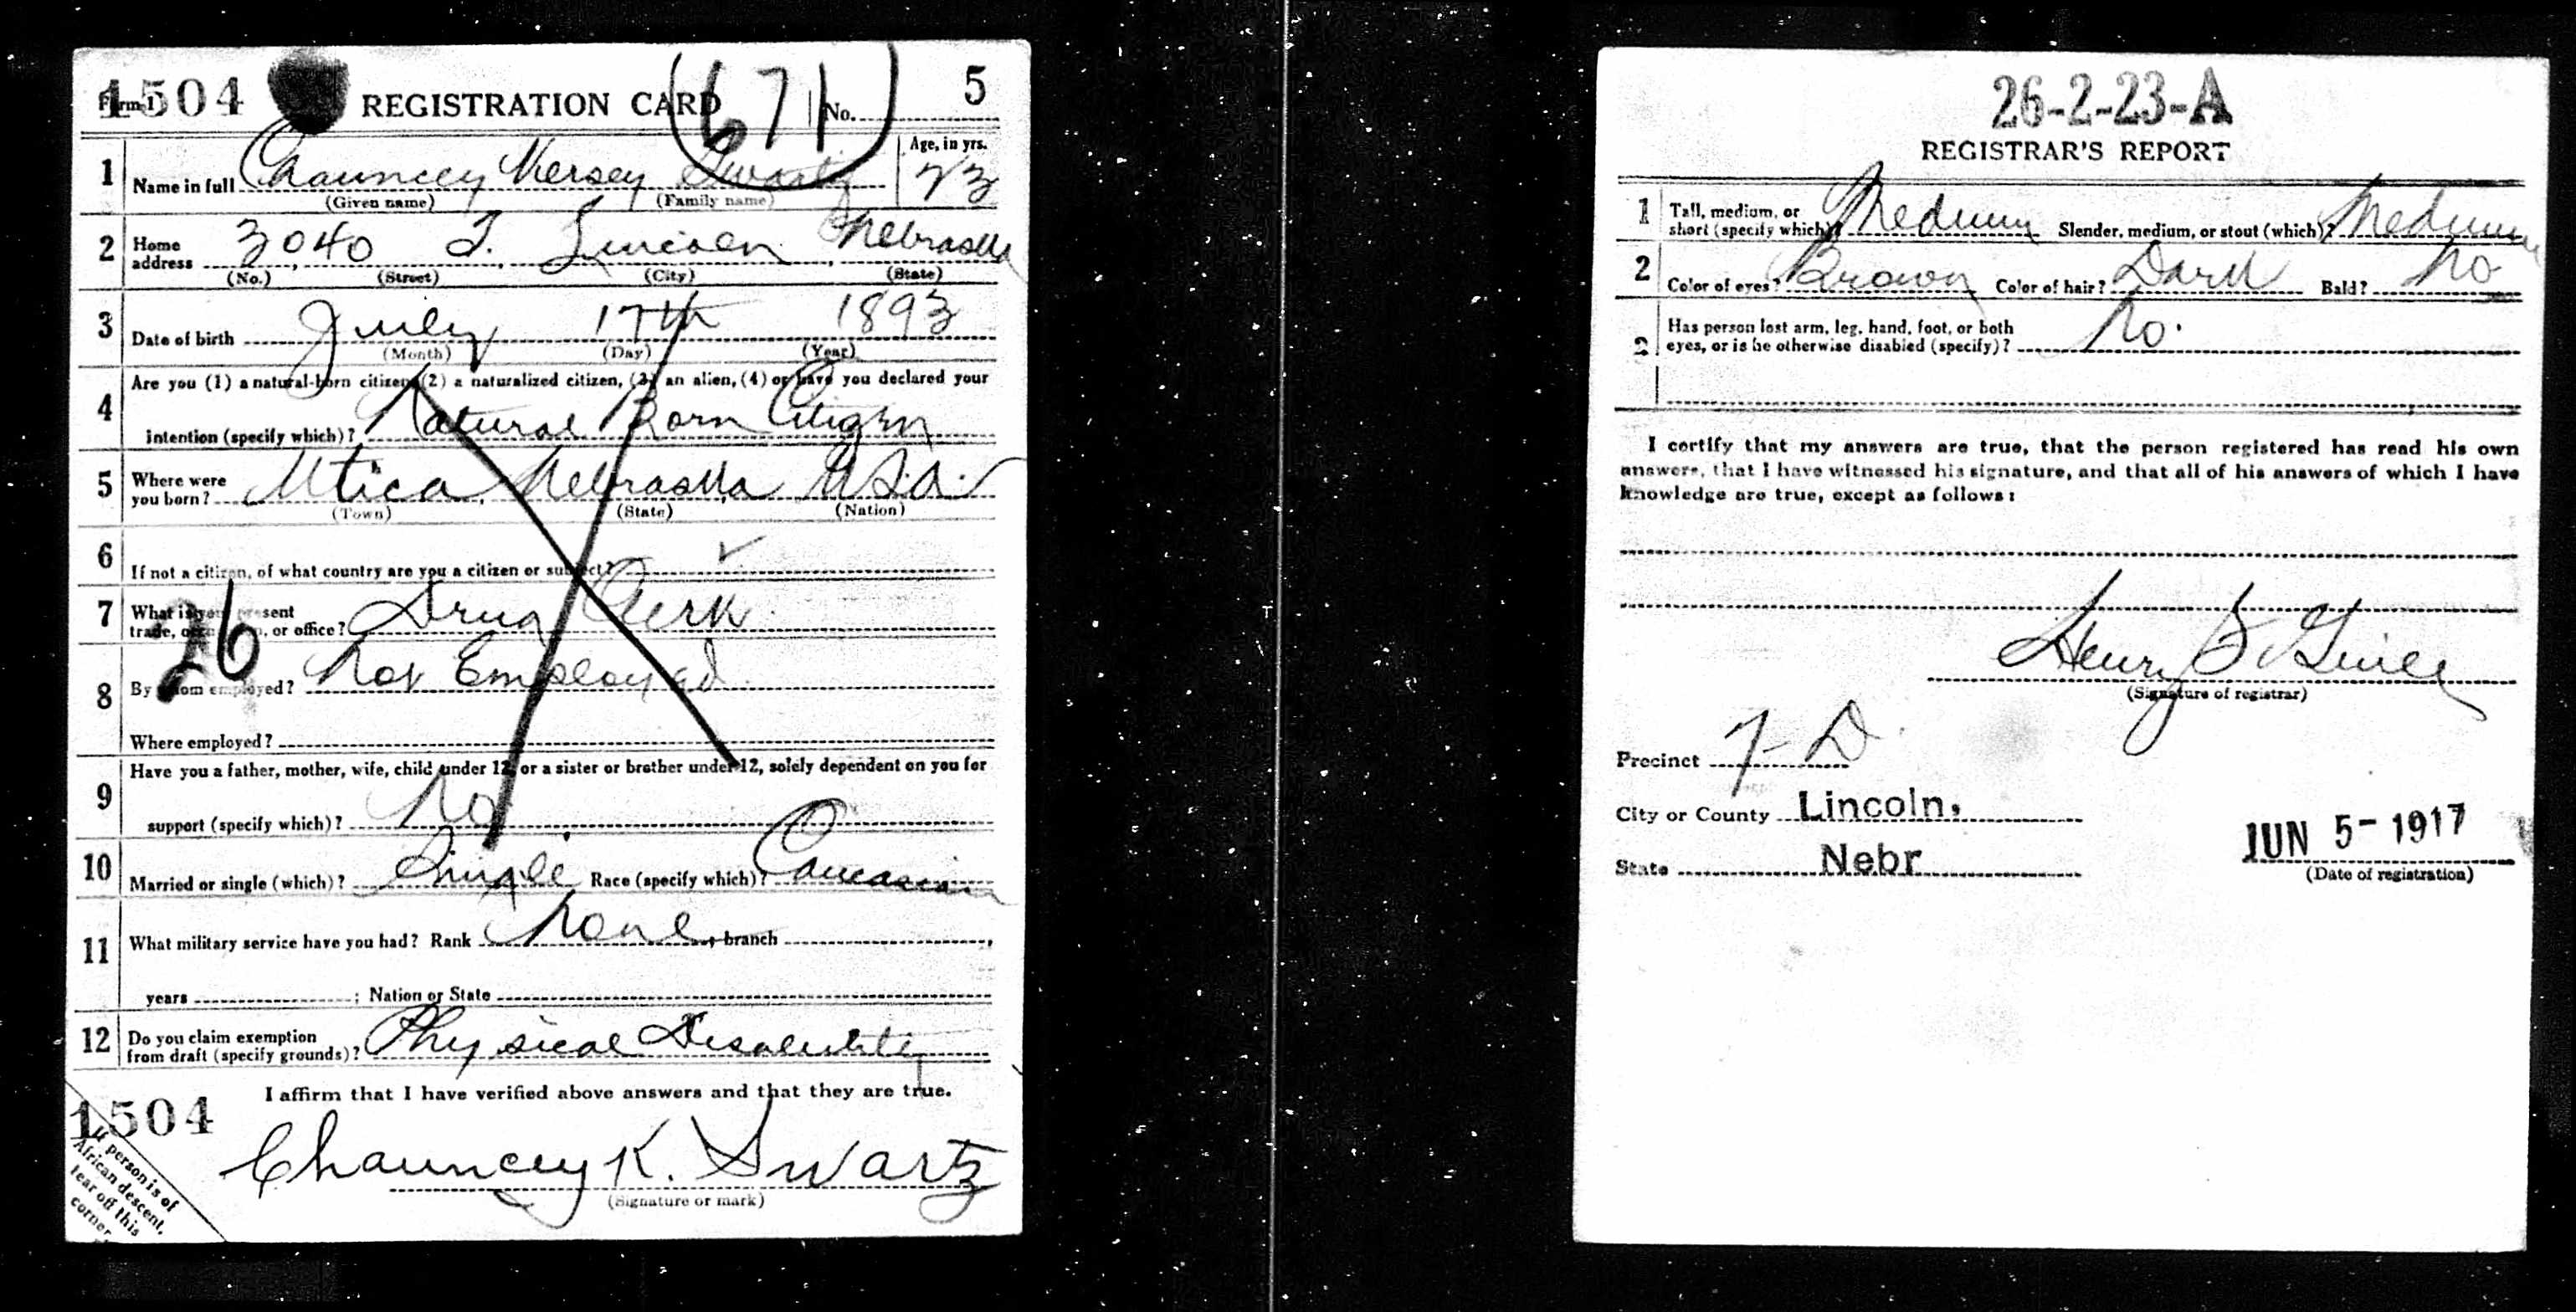 1504 Form 1 REGISTRATION CARD (671) No. 5
1 Name in full Chauncey Kersey Swartz Age, in yrs. 23
(Given name) (Family name)
2 Home address 3040 T. Lincoln Nebraska
(No.) (Street) (City) (State)
3 Date of birth July 17th 1893
(Month) (Day) (Year)
4 Are you (1) a natural-born citizen, (2) a naturalized citizen, (3) an alien, (4) or have you declared your
intention (specify which)? Natural Born Citizen
5 Where were you born? Utica, Nebraska U.S.A.
(Town) (State) (Nation)
6 If not a citizen, of what country are you a citizen or subject?
7 What is your present trade, occupation, or office? Drug Clerk
26
8 By whom employed? Not Employed
Where employed?
9 Have you a father, mother, wife, child under 12, or a sister or brother under 12, solely dependent on you for
support (specify which)? No
10 Married or single (which)? Single Race (specify which)? Caucasian
11 What military service have you had? Rank None, branch
years ; Nation or State
12 Do you claim exemption from draft (specify grounds)? Physical Disability
I affirm that I have verified above answers and that they are true.
1504
If person is of
African descent,
tear off this
corner
Chauncey K. Swartz
(Signature or mark)
26-2-23-A
REGISTRAR'S REPORT
1 Tall, medium, or short (specify which)? Medium Slender, medium, or stout (which)? Medium
2 Color of eyes? Brown Color of hair? Dark Bald? No
3 Has person lost arm, leg, hand, foot, or both
eyes, or is he otherwise disabled (specify)? No.
I certify that my answers are true, that the person registered has read his own
answers, that I have witnessed his signature, and that all of his answers of which I have
knowledge are true, except as follows:
Henry
(Signature of registrar)
Precinct 7-D
City or County Lincoln,
State Nebr
JUN 5- 1917
(Date of registration)